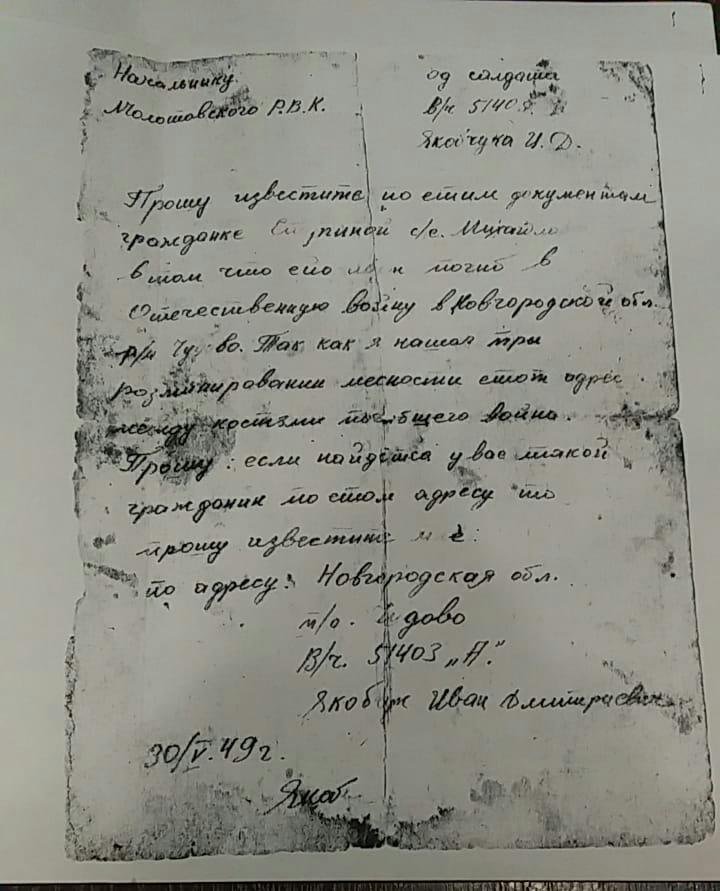 Начальнику
Молотовского Р.В.К.
од солдата
В/ч 51403
И. Д.
Прошу известите по етим документам
гражданке с/с.
в том что его погиб в
Отечественную войну в Новгородской обл.
р/н Так как я нашол при
розминировании месности етот адрес
между костями война.
Прошу: если найдётса у вас такой
гражданин по етом адресу то
прошу известите
по адресу: Новгородская обл.
п/о. Чудово
В/ч. 51403 „А."
Иван Дмитриевич
30/V.49 г.